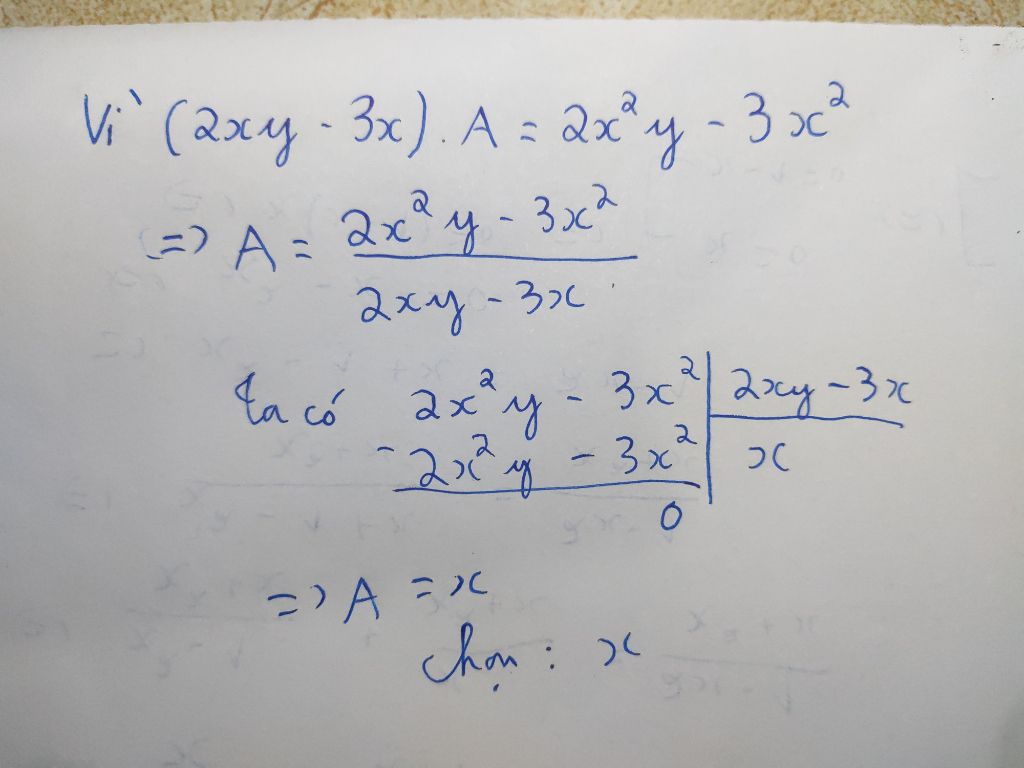 Vì (2xy - 3x). A = 2x²y - 3x²
=> A = \frac{2x²y - 3x²}{2xy - 3x}
Ta có 2x²y - 3x² | 2xy - 3x
- 2x²y - 3x² | x
0
=> A = x
Chọn: x